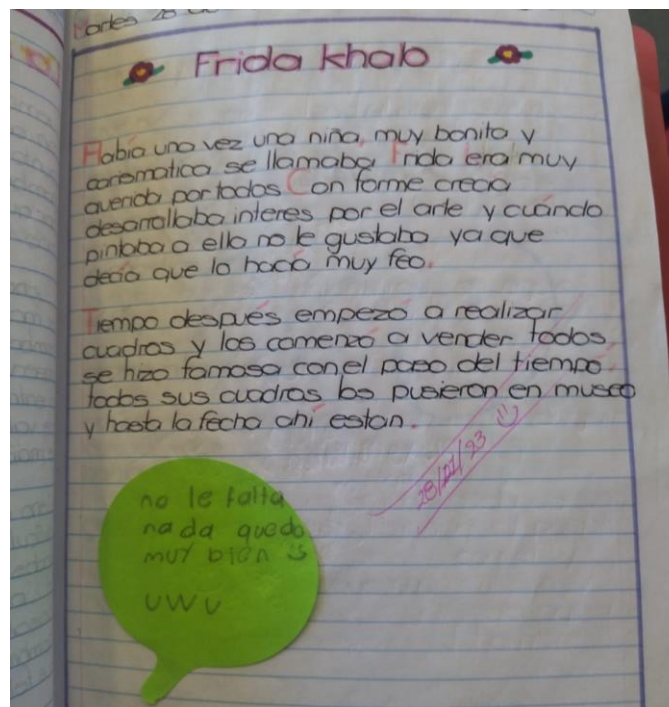 Martes 28
Frida khalo
Había una vez una niña, muy bonita y
carismatica se llamaba Frida era muy
querida por todos Con forme crecia
desarrollaba interes por el arte y cuándo
pintaba a ella no le gustaba ya que
decia que lo hacia muy feo.
Tiempo después empezó a realizar
cuadros y los comenzó a vender todos,
se hizo famosa con el paso del tiempo
todos sus cuadros los pusieron en museo
y hasta la fecha ahí estan.
28/11/23
no le falta
nada quedo
muy bien
UWU